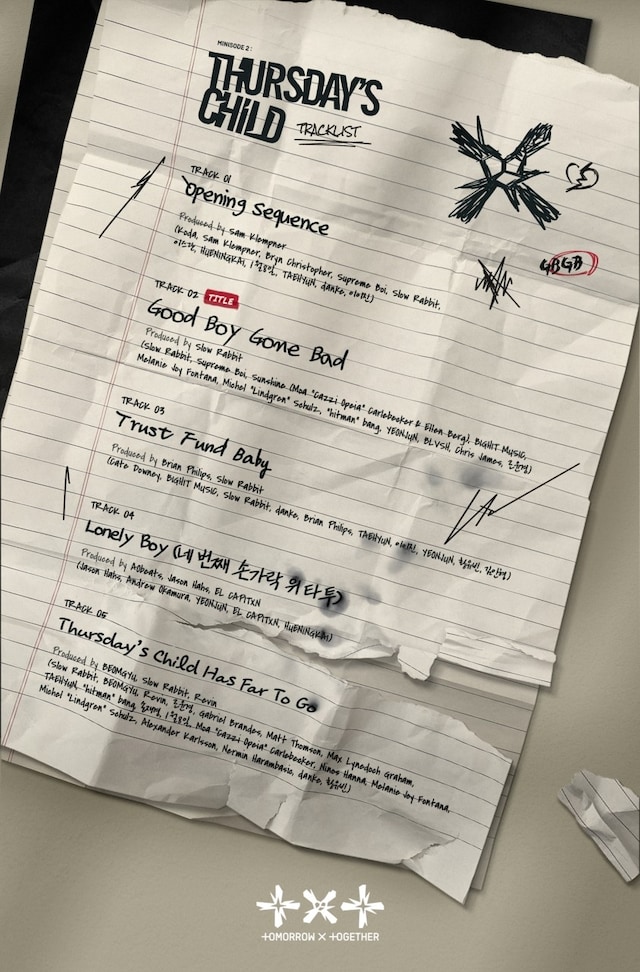 MINISODE 2:
THURSDAY'S
CHILD
TRACKLIST
TRACK 01
Opening Sequence
Produced by Sam Klempner
(Koda, Sam Klempner, Bryn Christopher, Supreme Boi, Slow Rabbit,
이스란, HUENINGKAI, 1월8일, TAEHYUN, danke, 이이진)
GBGB
TRACK 02 TITLE
Good Boy Gone Bad
Produced by Slow Rabbit
(Slow Rabbit, Supreme Boi, Sunshine (Moa "Cazzi Opeia" Carlebecker & Ellen Berg), BIGHIT MUSIC,
Melanie Joy Fontana, Michel "Lindgren" Schulz, "hitman" bang, YEONJUN, BLVSH, Chris James,
TRACK 03
Trust Fund Baby
Produced by Brian Philips, Slow Rabbit
(Cate Downey, BIGHIT MUSIC, Slow Rabbit, danke, Brian Philips, TAEHYUN, 이이진, YEONJUN, 황유빈,
TRACK 04
Lonely Boy (네 번째 손가락 위 타투)
Produced by AObeats, Jason Hahs, EL CAPITXN
(Jason Hahs, Andrew Okamura, YEONJUN, EL CAPITXN, HUENINGKAI)
TRACK 05
Thursday's Child Has Far To Go
Produced by BEOMGYU, Slow Rabbit, Revin
(Slow Rabbit, BEOMGYU, Revin, Gabriel Brandes, Matt Thomson, Max Lynedoch Graham,
TAEHYUN, "hitman" bang, 1월8일, Moa "Cazzi Opeia" Carlebecker, Ninos Hanna, Melanie Joy Fontana,
Michel "Lindgren" Schulz, Alexander Karlsson, Nermin Harambasic, danke, 황유빈)
TOMORROW X TOGETHER